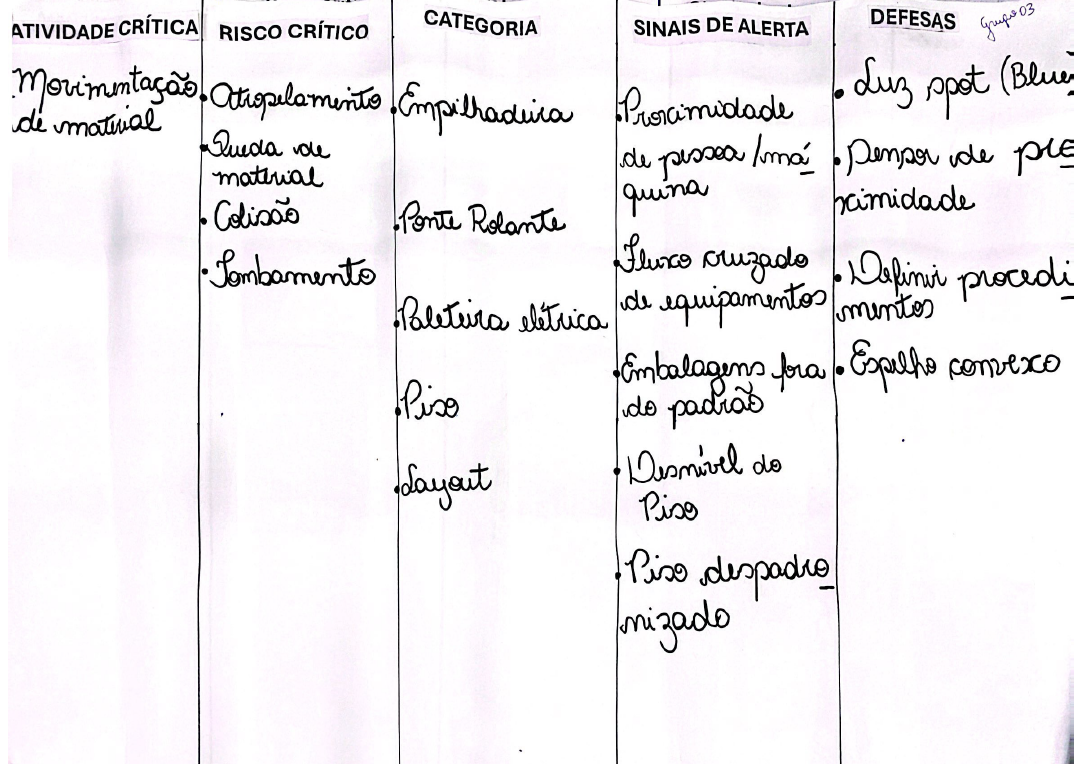 ATIVIDADE CRÍTICA
Movimentação
de material
RISCO CRÍTICO
• Atropelamento
• Queda de
material
• Colisão
• Tombamento
CATEGORIA
• Empilhadeira
• Ponte Rolante
• Paleteira elétrica
• Piso
• Layout
SINAIS DE ALERTA
• Proximidade
de pessoa / má
quina
• Fluxo cruzado
de equipamentos
• Embalagens fora
do padrão
• Desnível do
Piso
• Piso despadro
nizado
DEFESAS
Grupo 03
• Luz spot (Blue
• Sensor de pro
ximidade
• Definir procedi
mentos
• Espelho convexo